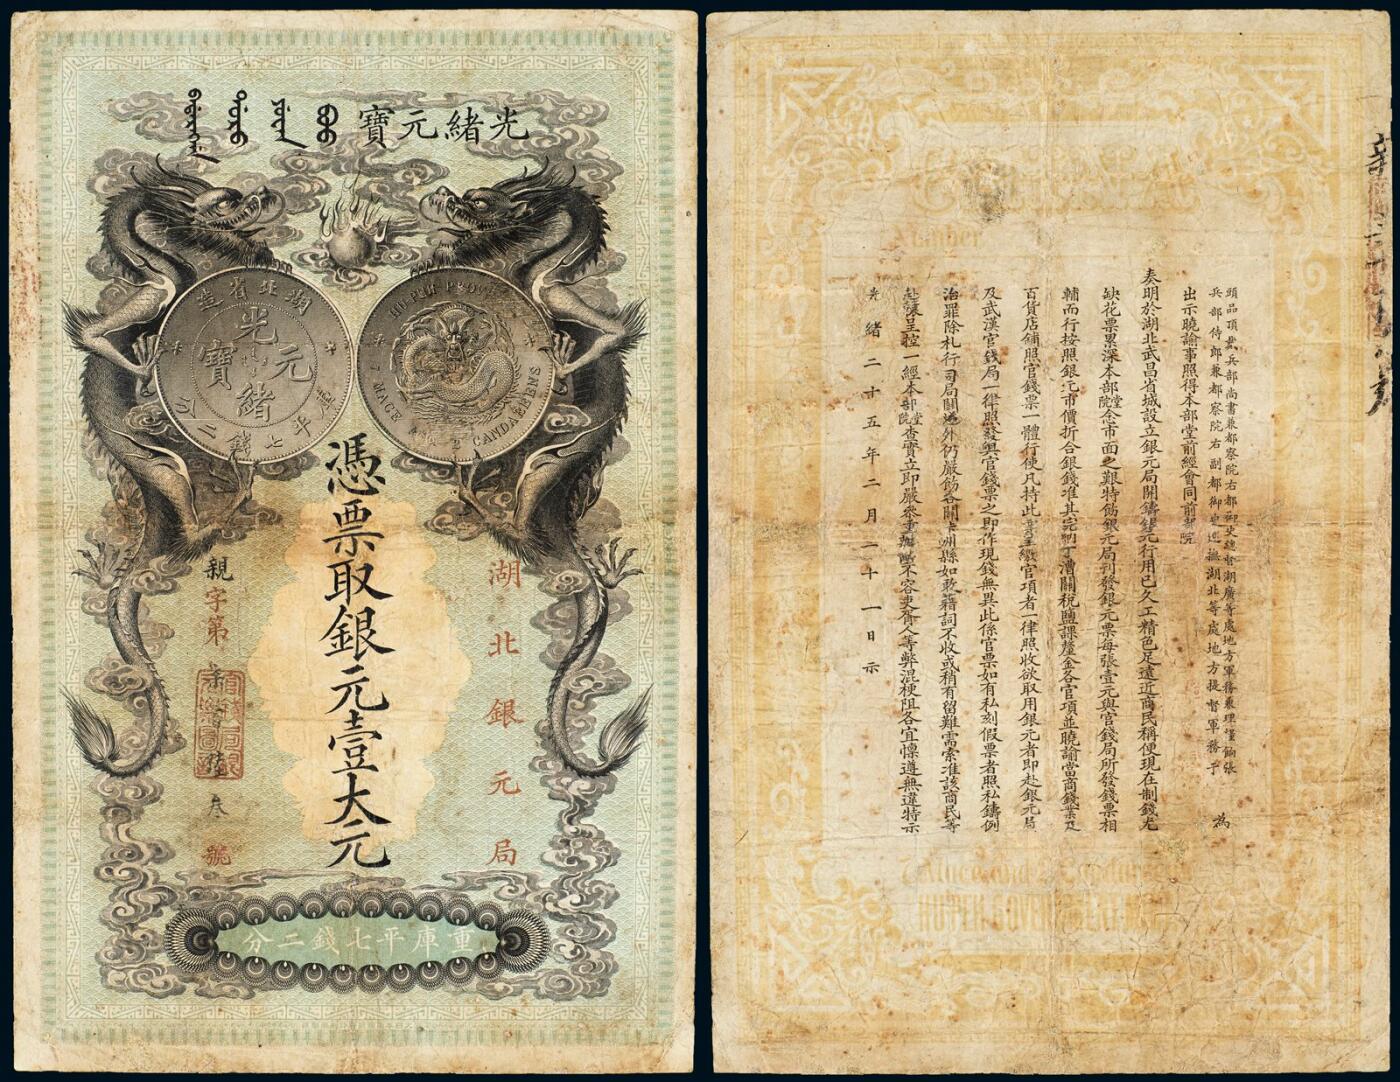 光緒元寶
湖北省造
光緒元寶
庫平七錢二分
HU-PEH PROVINCE
7 MACE AND 2 CANDAREENS
湖北銀元局
憑票取銀元壹大元
親字第
叁號
重庫平七錢二分
Number
頭品頂戴兵部尚書兼都察院右都御史總督湖廣等處地方軍務兼理糧餉張
兵部侍郎兼都察院右副都御史巡撫湖北等處地方提督軍務于 為
出示曉諭事照得本部堂前經會同前部院
奏明於湖北武昌省城設立銀元局開鑄銀元行用已久工精色足遠近商民稱便現在制錢尤
缺花票累深本部堂院念市面之艱特飭銀元局刊發銀元票每張壹元與官錢局所發錢票相
輔而行按照銀元市價折合銀錢准其完納丁漕關稅鹽課釐金各官項並曉諭當商錢業及
百貨店舖照官錢票一體行使凡持此票呈繳官項者一律照收欲取用銀元者即赴銀元局
及武漢官錢局一律照發與官錢票之即作現錢無異此係官票如有私刻假票者照私鑄例
治罪除札行司局關道外仍嚴飭各關卡州縣如敢藉詞不收或稍有留難需索准該商民等
赴轅呈控一經本部堂院查實立即嚴參重辦斷不容吏胥人等弊混梗阻各宜懍遵無違特示
光緒二十五年二月二十一日示
7 Mace and 2 Candareens
HUPEH GOVERNMENT